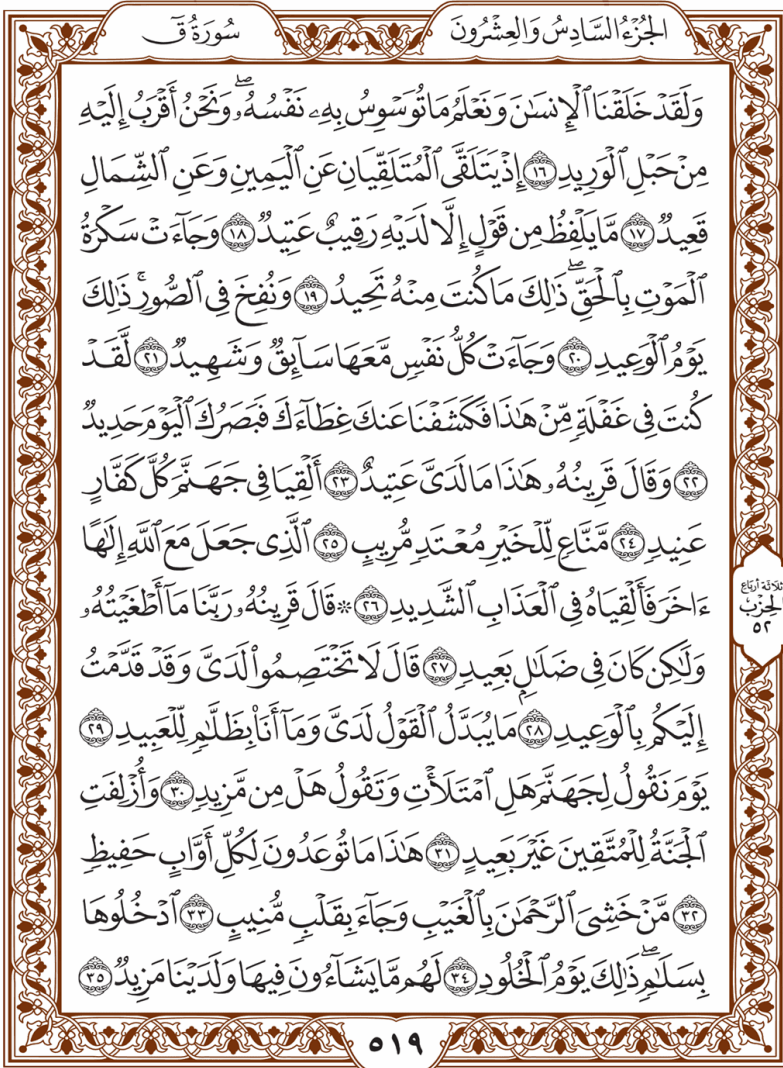 سُورَةُ قٓ
الجُزْءُ السَّادِسُ وَالعِشْرُونَ
وَلَقَدْ خَلَقْنَا ٱلْإِنسَٰنَ وَنَعْلَمُ مَا تُوَسْوِسُ بِهِۦ نَفْسُهُۥۖ وَنَحْنُ أَقْرَبُ إِلَيْهِ
مِنْ حَبْلِ ٱلْوَرِيدِ ١٦ إِذْ يَتَلَقَّى ٱلْمُتَلَقِّيَانِ عَنِ ٱلْيَمِينِ وَعَنِ ٱلشِّمَالِ
قَعِيدٌ ١٧ مَّا يَلْفِظُ مِن قَوْلٍ إِلَّا لَدَيْهِ رَقِيبٌ عَتِيدٌ ١٨ وَجَآءَتْ سَكْرَةُ
ٱلْمَوْتِ بِٱلْحَقِّۖ ذَٰلِكَ مَا كُنتَ مِنْهُ تَحِيدُ ١٩ وَنُفِخَ فِى ٱلصُّورِۚ ذَٰلِكَ
يَوْمُ ٱلْوَعِيدِ ٢٠ وَجَآءَتْ كُلُّ نَفْسٍ مَّعَهَا سَآئِقٌ وَشَهِيدٌ ٢١ لَّقَدْ
كُنتَ فِى غَفْلَةٍ مِّنْ هَٰذَا فَكَشَفْنَا عَنكَ غِطَآءَكَ فَبَصَرُكَ ٱلْيَوْمَ حَدِيدٌ
٢٢ وَقَالَ قَرِينُهُۥ هَٰذَا مَا لَدَىَّ عَتِيدٌ ٢٣ أَلْقِيَا فِى جَهَنَّمَ كُلَّ كَفَّارٍ
عَنِيدٍ ٢٤ مَّنَّاعٍ لِّلْخَيْرِ مُعْتَدٍ مُّرِيبٍ ٢٥ ٱلَّذِى جَعَلَ مَعَ ٱللَّهِ إِلَٰهًا
ءَاخَرَ فَأَلْقِيَاهُ فِى ٱلْعَذَابِ ٱلشَّدِيدِ ٢٦ ۞ قَالَ قَرِينُهُۥ رَبَّنَا مَآ أَطْغَيْتُهُۥ
وَلَٰكِن كَانَ فِى ضَلَٰلٍۭ بَعِيدٍ ٢٧ قَالَ لَا تَخْتَصِمُوا۟ لَدَىَّ وَقَدْ قَدَّمْتُ
إِلَيْكُم بِٱلْوَعِيدِ ٢٨ مَا يُبَدَّلُ ٱلْقَوْلُ لَدَىَّ وَمَآ أَنَا۠ بِظَلَّٰمٍ لِّلْعَبِيدِ ٢٩
يَوْمَ نَقُولُ لِجَهَنَّمَ هَلِ ٱمْتَلَأْتِ وَتَقُولُ هَلْ مِن مَّزِيدٍ ٣٠ وَأُزْلِفَتِ
ٱلْجَنَّةُ لِلْمُتَّقِينَ غَيْرَ بَعِيدٍ ٣١ هَٰذَا مَا تُوعَدُونَ لِكُلِّ أَوَّابٍ حَفِيظٍ
٣٢ مَّنْ خَشِىَ ٱلرَّحْمَٰنَ بِٱلْغَيْبِ وَجَآءَ بِقَلْبٍ مُّنِيبٍ ٣٣ ٱدْخُلُوهَا
بِسَلَٰمٍۖ ذَٰلِكَ يَوْمُ ٱلْخُلُودِ ٣٤ لَهُم مَّا يَشَآءُونَ فِيهَا وَلَدَيْنَا مَزِيدٌ ٣٥
ثلاثة أرباع
الحزب
٥٢
٥١٩